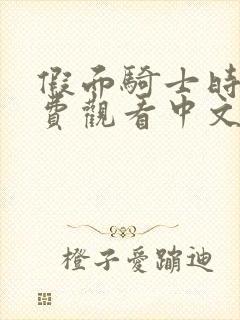 假面騎士時
費觀看中文
橙子愛蹦迪